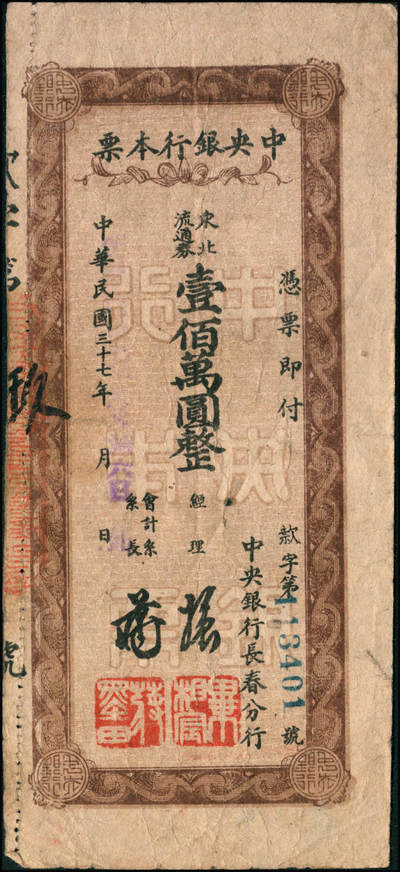 中央銀行本票
憑票即付
款字第113401號
中央銀行長春分行
東北
流通券
壹佰萬圓整
經理
會計系
系長
中華民國三十七年 月 日
玖
號